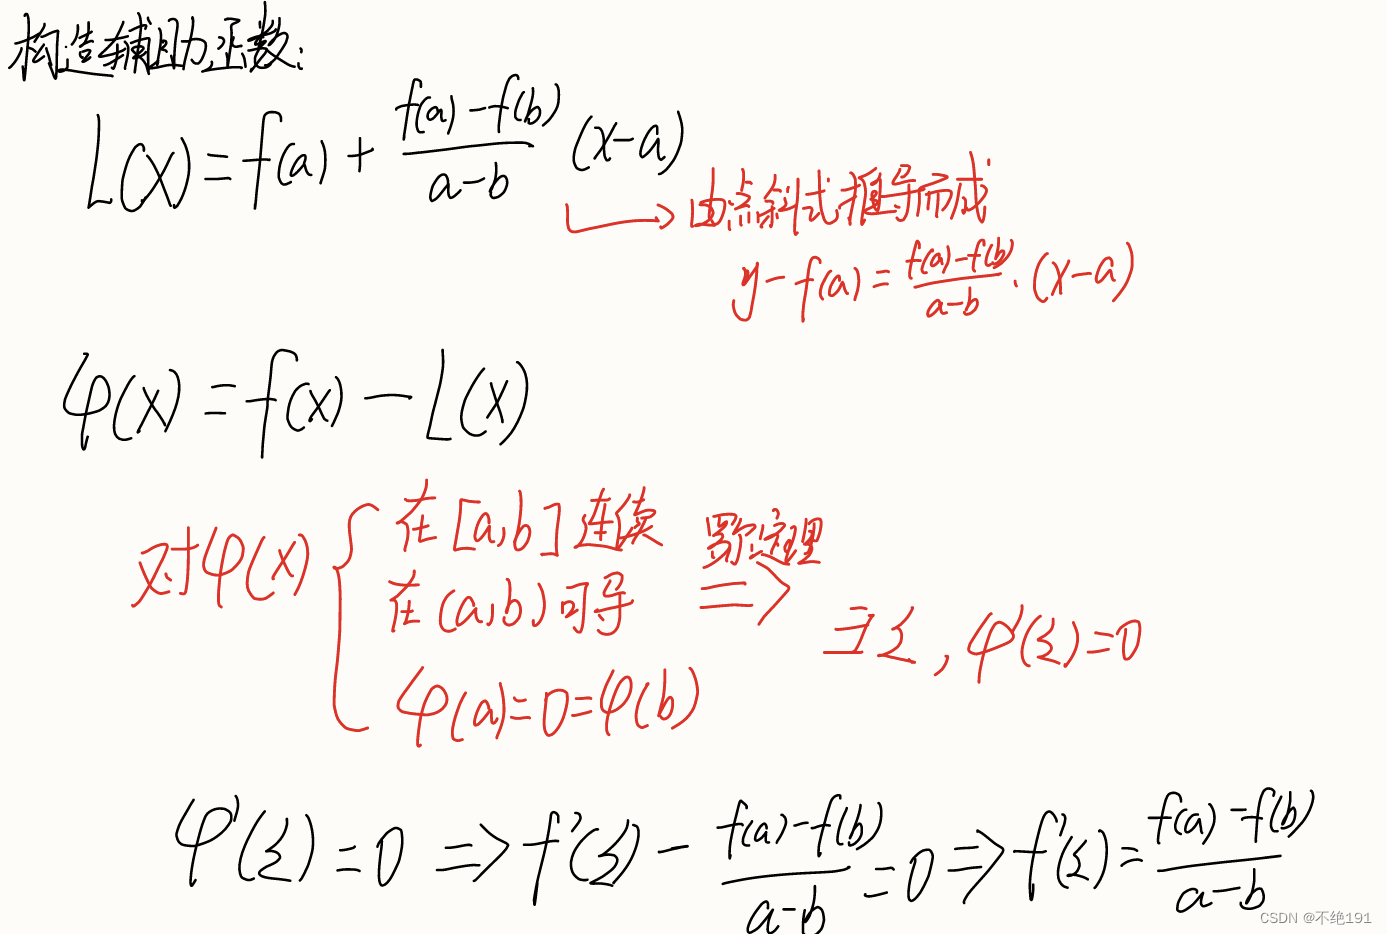 构造辅助函数:
L(x)=f(a)+\frac{f(a)-f(b)}{a-b}(x-a)
由点斜式推导而成
y-f(a)=\frac{f(a)-f(b)}{a-b}·(x-a)
φ(x)=f(x)-L(x)
对φ(x)
在[a,b]连续
在(a,b)可导
φ(a)=0=φ(b)
罗尔定理
⇒
∃ξ,φ'(ξ)=0
φ'(ξ)=0⇒f'(ξ)-\frac{f(a)-f(b)}{a-b}=0⇒f'(ξ)=\frac{f(a)-f(b)}{a-b}
CSDN @不绝191